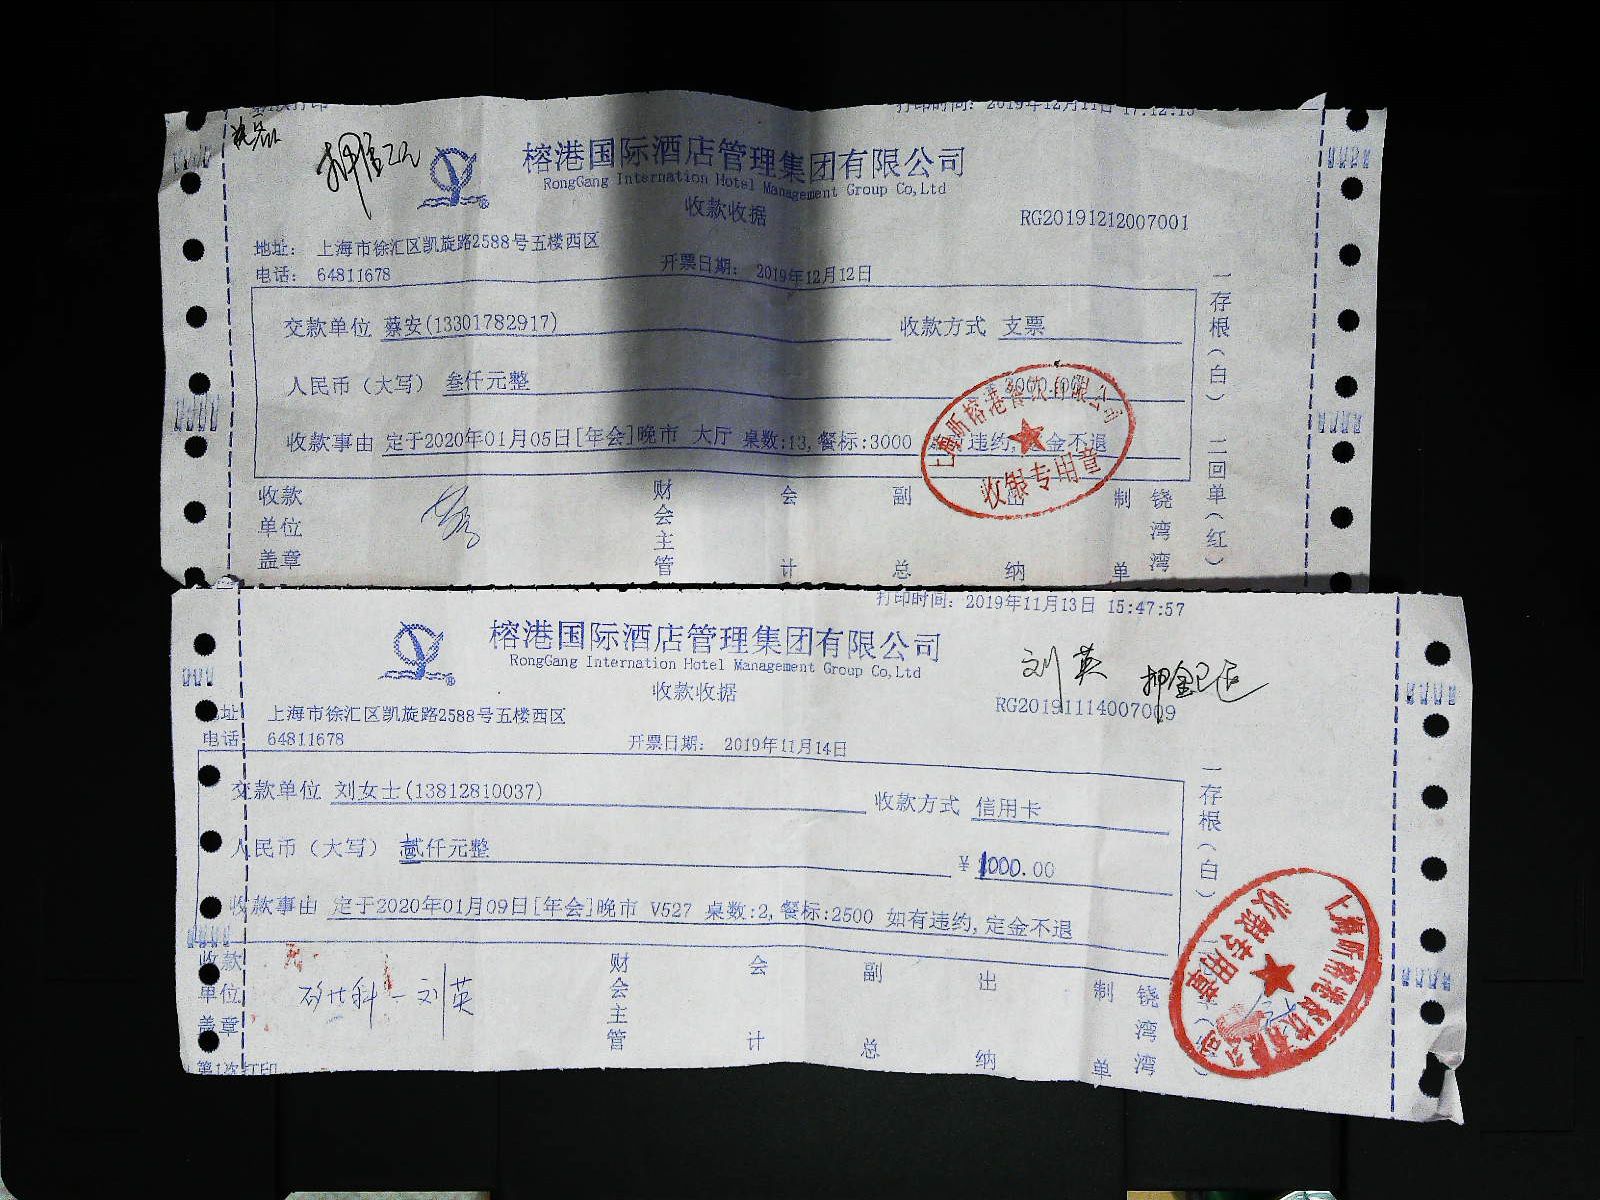 打印时间: 2019年12月11日 17:12:15
押金已退
榕港国际酒店管理集团有限公司
RongGang Internation Hotel Management Group Co,Ltd
收款收据
RG20191212007001
地址: 上海市徐汇区凯旋路2588号五楼西区
电话: 64811678
开票日期: 2019年12月12日
交款单位 蔡安(13301782917)
收款方式 支票
人民币（大写） 叁仟元整
收款事由 定于2020年01月05日[年会]晚市 大厅 桌数:13,餐标:3000 违约,定金不退
一存根(白) 二回单(红)
上海昕榕港餐饮有限公司
收银专用章
收款单位盖章
财会主管
会计
副总
出纳
制单
铙湾湾
打印时间: 2019年11月13日 15:47:57
榕港国际酒店管理集团有限公司
RongGang Internation Hotel Management Group Co,Ltd
收款收据
刘英 押金已退
RG20191114007009
地址 上海市徐汇区凯旋路2588号五楼西区
电话: 64811678
开票日期: 2019年11月14日
交款单位 刘女士(13812810037)
收款方式 信用卡
人民币（大写） 贰仟元整
¥ 1000.00
收款事由 定于2020年01月09日[年会]晚市 V527 桌数:2,餐标:2500 如有违约,定金不退
一存根(白)
上海昕榕港餐饮有限公司
收银专用章
收款单位盖章
刘英
财会主管
会计
副总
出纳
制单
铙湾湾
第1次打印